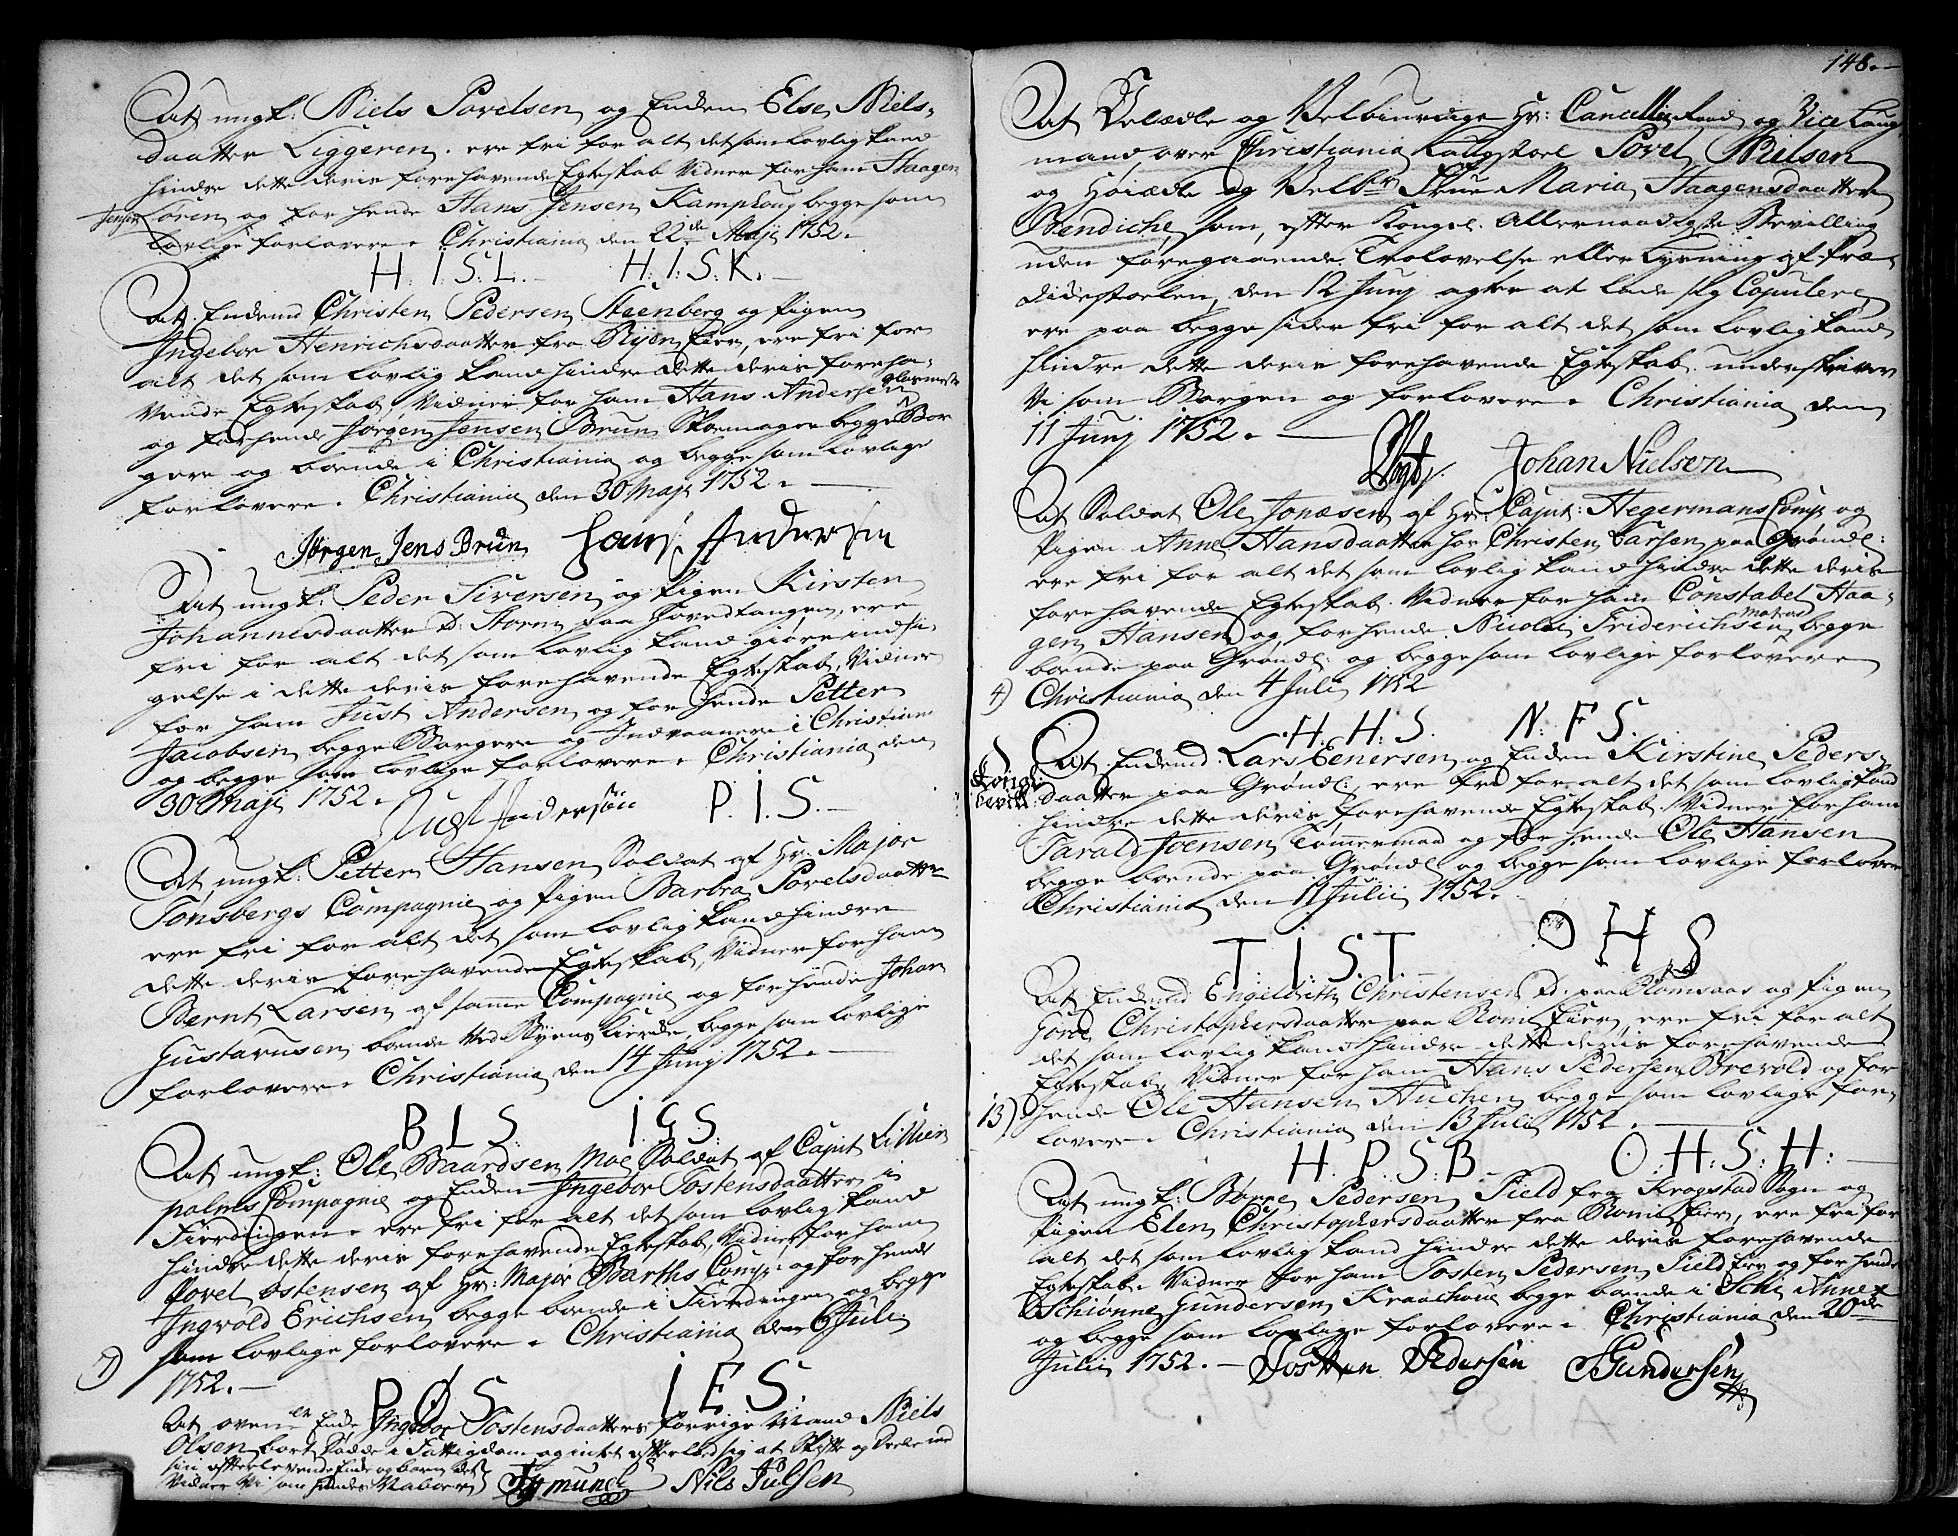 At ungk: Niels Povelsen og Enken Else Niels-
daatter Liggeren, ere fri for alt det som lovlig kand
hindre dette deris forehavende Egteskab Vidner for ham Haagen
Jensen Loren og for hende Hans Jensen Kamphoug begge som
lovlige forlovere. Christiania den 22de Maji 1752.
H. I. S. L. H. I. S. K.
At Enkemd Christen Pedersen Steenberg og Pigen
Ingebor Henrichsdaatter fra Ryen Eier, ere fri for
alt det som lovlig kand hindre dette deris foreha-
vende Egteskab, Vidner for ham Hans Andersen glarmester
og for hende Jørgen Jensen Brun Skoemager begge Bor
gere og boende i Christiania og begge som lovlige
forlovere. Christiania den 30 Maji 1752.
Jørgen Jens Brun Hans Andersen
At ungk: Peder Siversen og Pigen Kirsten
Johannesdaatter paa Hovedtangen, ere
fri for alt det som lovlig kand giøre indsi-
gelse i dette deris forehavende Egteskab, Vidner
for ham Just Andersen og for hende Petter
Jacobsen begge Borgere og Indvaanere i Christiania
og begge som lovlige forlovere. Christiania den
30 Maji 1752.
Just Andersøn P. I. S.
At ungk: Petter Hansen Soldat af Hr: Major
Tønsbergs Compagnie og Pigen Barbra Povelsdaatter
ere fri for alt det som lovlig kand hindre
dette deris forehavende Egteskab, Vidner for ham
Bernt Larsen af samme Compagnie og for hende Johan
Gustavusen boende ved Byens Kirke begge som lovlige
forlovere. Christiania den 14 Junij 1752.
B L S. I G S.
At ungk: Ole Baardsen Moe Soldat af Capit Lillien
palms Compagnie og Enken Ingebor Tostensdaatter i
Fierdingen. ere fri for alt det som lovlig kand
hindre dette deris forehavende Egteskab, Vidner for ham
Povel Østensen af Hr: Major Barths Comp: og for hende
Ingvold Erichsen begge boende i Fierdingen og begge
som lovlige forlovere. Christiania den 6 Juli
7) 1752.
P. Ø S. I E S.
At oven Enke Ingebor Tostensdaatters forrige Mand Niels
Olsen bort døde i Fattigdom og intet efterlod sig at Skifte og Deele imd
sin efterlevende Enke og børn det
Vidner Vi som hendes Naboer Nils Julsen
148.
At Velædle og Velbiurdige Hr: Cancellie Raad og Vice Laug
mand over Christiania Laugstoel Povel Nielsen
og Høiædle og Velbr Frue Maria Haagensdaatter
Bendiche, som, efter Kongel. Allernaadigste Bevilling
uden foregaaende Trolovelse eller Lysning af Præ-
dickestoelen, den 12 Junij agter at lade sig Copulere
ere paa begge sider fri for alt det som lovlig kand
hindre dette deris forehavende Egteskab, underskriver
Vi som Borgen og forlovere. Christiania den
11 Junij 1752.
Vogt Johan Nielsen
At Soldat Ole Jonæsen af Hr: Capit: Hegermans Comp og
Pigen Anne Hansdaatter hos Christen Larsen paa Grønl:
ere fri for alt det som lovlig kand hindre dette deris
forehavende Egteskab. Vidner for ham Constabel Haa-
gen Hansen og for hende Nicolai Friderichsen begge
boende paa Grønl: og begge som lovlige forlovere
4) Christiania den 4 Juli 1752
H. H. S. N. F S.
At Enkemd: Lars Enersen og Enken Kirstine Peders
Kongl: bevill daatter paa Grønl: ere fri for alt det som lovlig kand
hindre dette deris forehavende Egteskab. Vidner for ham
Tarald Joensen Tømermand og for hende Ole Hansen
begge boende paa Grønl: og begge som lovlige forlovere
Christiania den 11 Julii 1752.
T. I. S. T. O H S
At Enkemd Engelbreth Christensen paa Romsaas og Pigen
Goroe Christophersdaatter paa Romi Eier, ere fri for alt
det som lovlig kand hindre dette deris forehavende
Egteskab. Vidner for ham Hans Pedersen Brevold og for
13) hende Ole Hansen Hucken begge som lovlige for-
lovere. Christiania den 13 Julii 1752.
H. P. S. B. O. H. S. H.
At ungk: Børre Pedersen Field fra Krogstad Sogn og
Pigen Elen Christophersdaatter fra Romi Eier, ere fri for
alt det som lovlig kand hindre dette deris forehavende
Egteskab. Vidner for ham Tosten Pedersen Field Eier og for hende
Schiønne Gundersen Kraachoue begge boende i Schi Annex
og begge som lovlige forlovere. Christiania den 20de
Julii 1752. Tosten Pedersen SGundersen